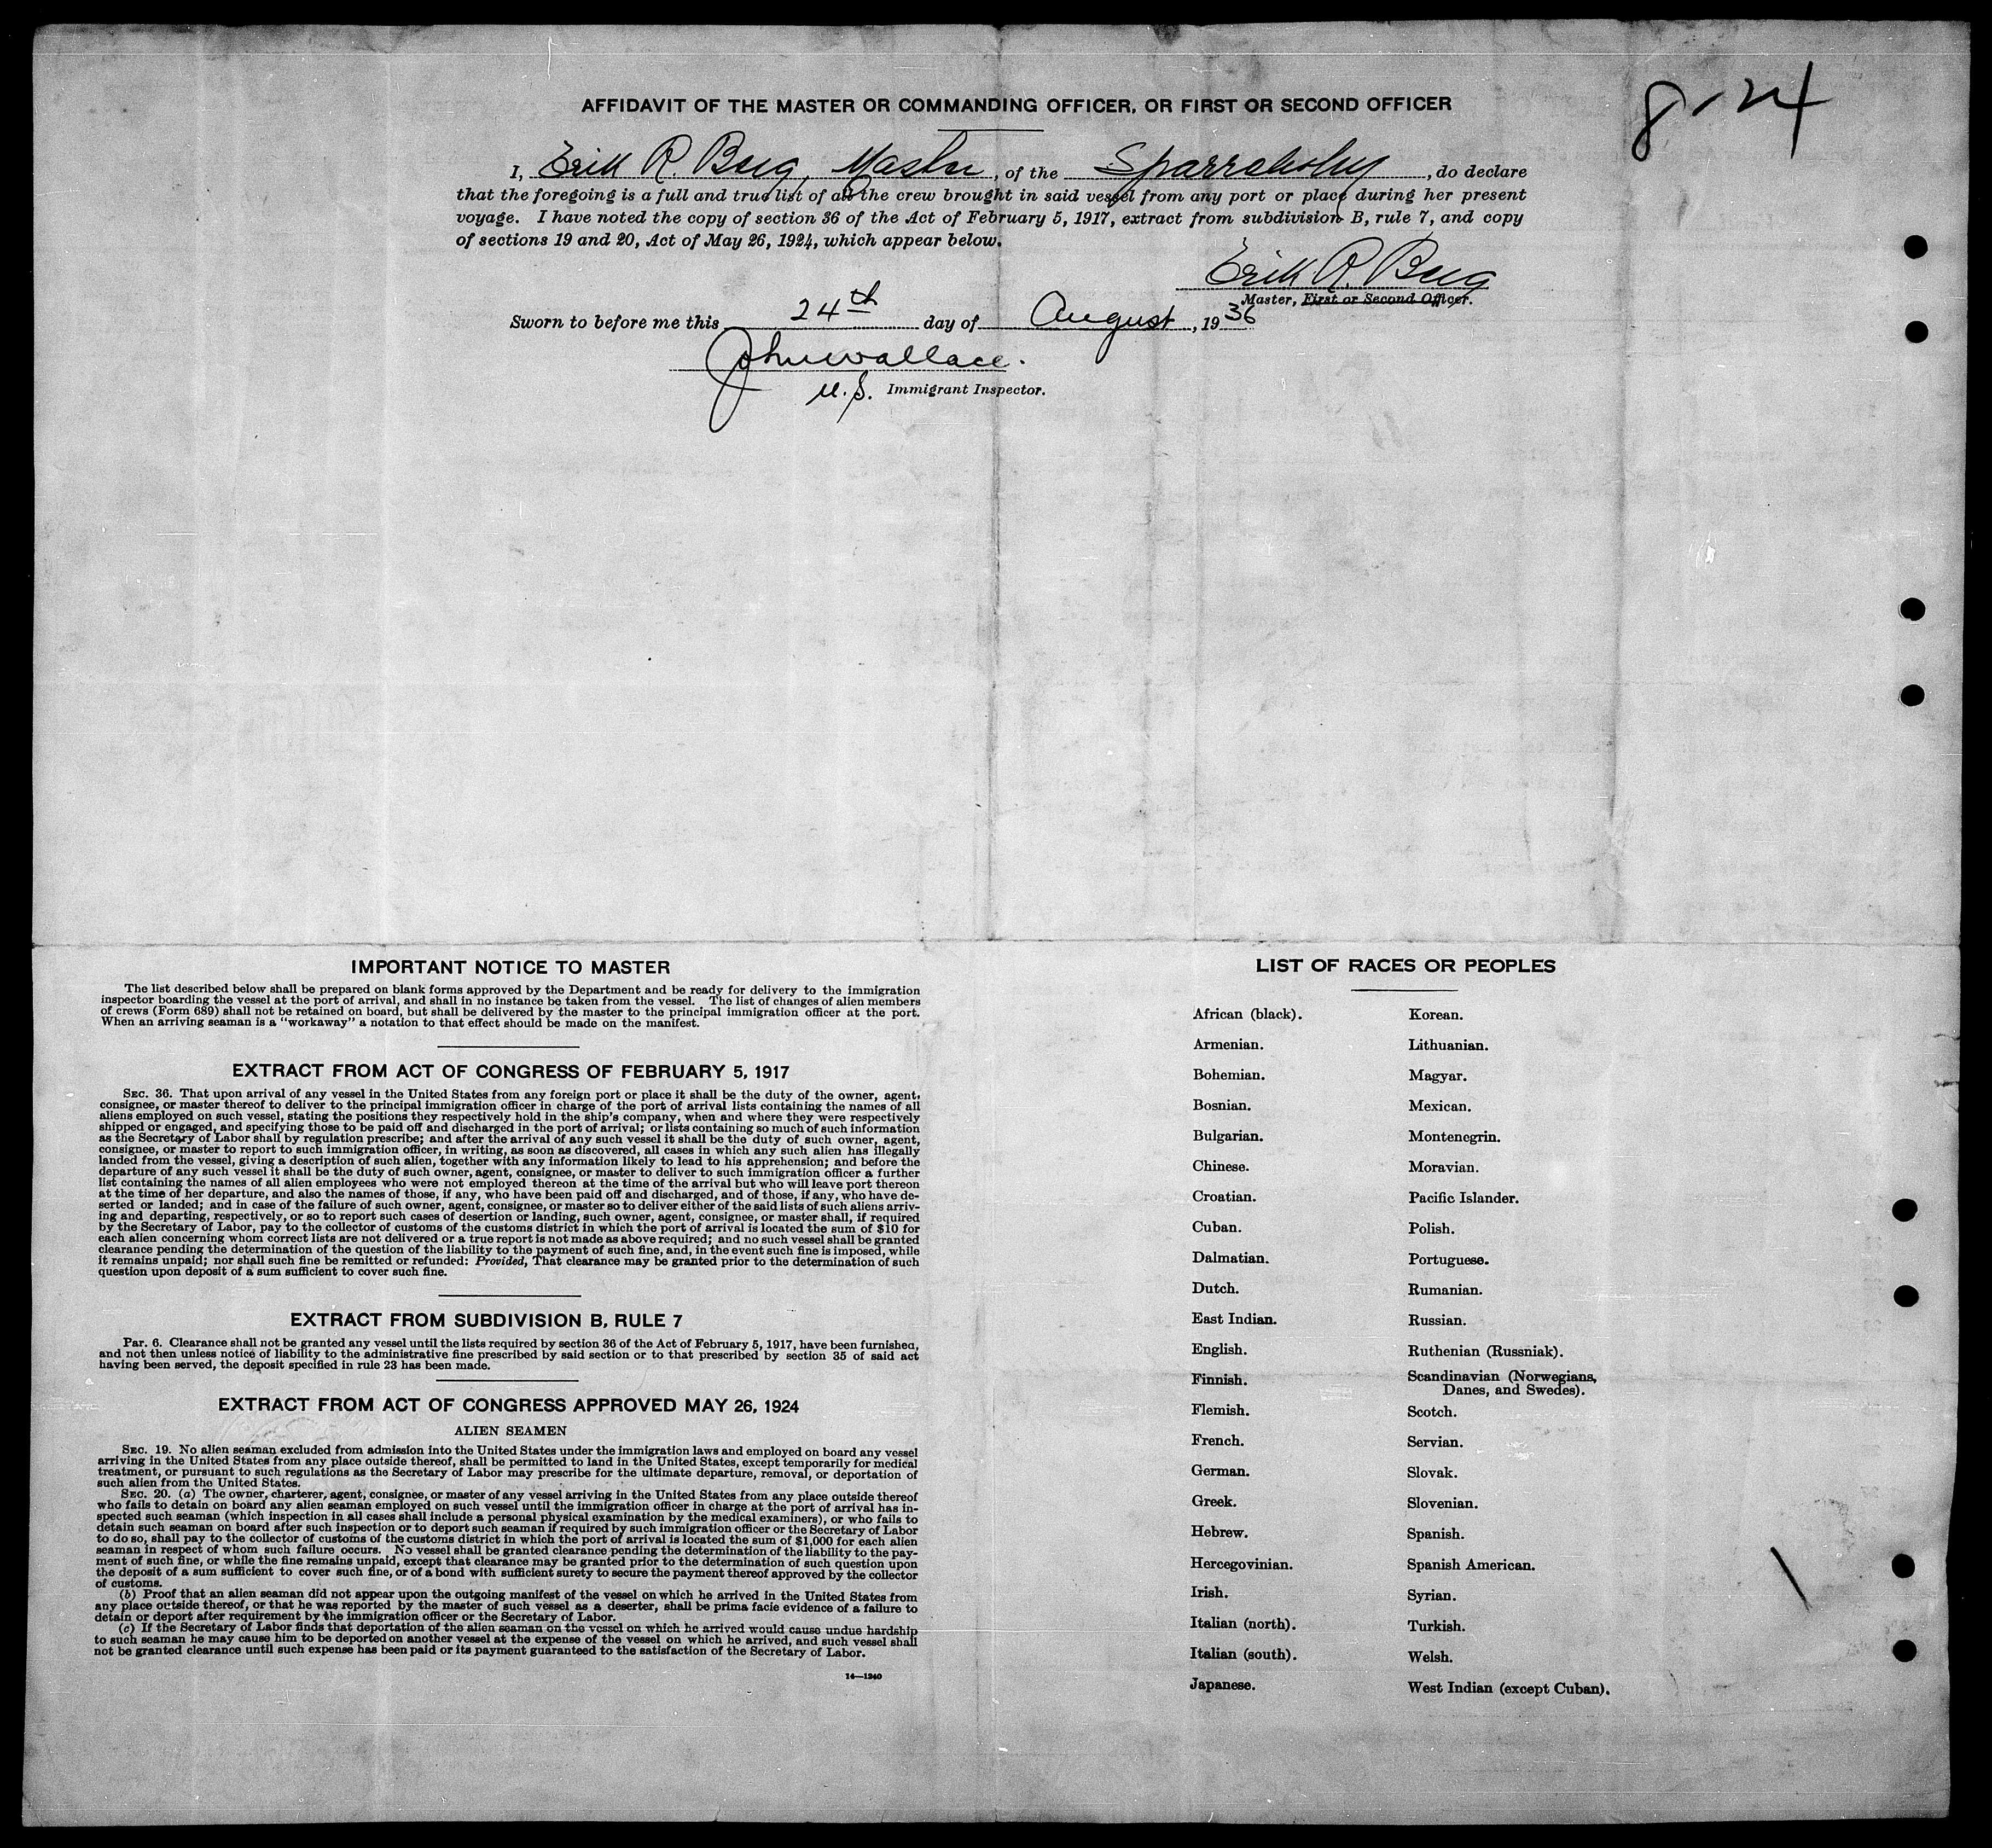 8-24
AFFIDAVIT OF THE MASTER OR COMMANDING OFFICER, OR FIRST OR SECOND OFFICER
I, Erik R. Berg, Master, of the Sparreholm, do declare
that the foregoing is a full and true list of all the crew brought in said vessel from any port or place during her present
voyage. I have noted the copy of section 36 of the Act of February 5, 1917, extract from subdivision B, rule 7, and copy
of sections 19 and 20, Act of May 26, 1924, which appear below.
Erik R. Berg
Master, First or Second Officer.
Sworn to before me this 24th day of August, 1936
John Wallace.
U.S. Immigrant Inspector.
IMPORTANT NOTICE TO MASTER
The list described below shall be prepared on blank forms approved by the Department and be ready for delivery to the immigration
inspector boarding the vessel at the port of arrival, and shall in no instance be taken from the vessel. The list of changes of alien members
of crews (Form 689) shall not be retained on board, but shall be delivered by the master to the principal immigration officer at the port.
When an arriving seaman is a "workaway" a notation to that effect should be made on the manifest.
EXTRACT FROM ACT OF CONGRESS OF FEBRUARY 5, 1917
SEC. 36. That upon arrival of any vessel in the United States from any foreign port or place it shall be the duty of the owner, agent,
consignee, or master thereof to deliver to the principal immigration officer in charge of the port of arrival lists containing the names of all
aliens employed on such vessel, stating the positions they respectively hold in the ship's company, when and where they were respectively
shipped or engaged, and specifying those to be paid off and discharged in the port of arrival; or lists containing so much of such information
as the Secretary of Labor shall by regulation prescribe; and after the arrival of any such vessel it shall be the duty of such owner, agent,
consignee, or master to report to such immigration officer, in writing, as soon as discovered, all cases in which any such alien has illegally
landed from the vessel, giving a description of such alien, together with any information likely to lead to his apprehension; and before the
departure of any such vessel it shall be the duty of such owner, agent, consignee, or master to deliver to such immigration officer a further
list containing the names of all alien employees who were not employed thereon at the time of the arrival but who will leave port thereon
at the time of her departure, and also the names of those, if any, who have been paid off and discharged, and of those, if any, who have de-
serted or landed; and in case of the failure of such owner, agent, consignee, or master so to deliver either of the said lists of such aliens arriv-
ing and departing, respectively, or so to report such cases of desertion or landing, such owner, agent, consignee, or master shall, if required
by the Secretary of Labor, pay to the collector of customs of the customs district in which the port of arrival is located the sum of $10 for
each alien concerning whom correct lists are not delivered or a true report is not made as above required; and no such vessel shall be granted
clearance pending the determination of the question of the liability to the payment of such fine, and, in the event such fine is imposed, while
it remains unpaid; nor shall such fine be remitted or refunded: Provided, That clearance may be granted prior to the determination of such
question upon deposit of a sum sufficient to cover such fine.
EXTRACT FROM SUBDIVISION B, RULE 7
Par. 6. Clearance shall not be granted any vessel until the lists required by section 36 of the Act of February 5, 1917, have been furnished,
and not then unless notice of liability to the administrative fine prescribed by said section or to that prescribed by section 35 of said act
having been served, the deposit specified in rule 23 has been made.
EXTRACT FROM ACT OF CONGRESS APPROVED MAY 26, 1924
ALIEN SEAMEN
SEC. 19. No alien seaman excluded from admission into the United States under the immigration laws and employed on board any vessel
arriving in the United States from any place outside thereof, shall be permitted to land in the United States, except temporarily for medical
treatment, or pursuant to such regulations as the Secretary of Labor may prescribe for the ultimate departure, removal, or deportation of
such alien from the United States.
SEC. 20. (a) The owner, charterer, agent, consignee, or master of any vessel arriving in the United States from any place outside thereof
who fails to detain on board any alien seaman employed on such vessel until the immigration officer in charge at the port of arrival has in-
spected such seaman (which inspection in all cases shall include a personal physical examination by the medical examiners), or who fails to
detain such seaman on board after such inspection or to deport such seaman if required by such immigration officer or the Secretary of Labor
to do so, shall pay to the collector of customs of the customs district in which the port of arrival is located the sum of $1,000 for each alien
seaman in respect of whom such failure occurs. No vessel shall be granted clearance pending the determination of the liability to the pay-
ment of such fine, or while the fine remains unpaid, except that clearance may be granted prior to the determination of such question upon
the deposit of a sum sufficient to cover such fine, or of a bond with sufficient surety to secure the payment thereof approved by the collector
of customs.
(b) Proof that an alien seaman did not appear upon the outgoing manifest of the vessel on which he arrived in the United States from
any place outside thereof, or that he was reported by the master of such vessel as a deserter, shall be prima facie evidence of a failure to
detain or deport after requirement by the immigration officer or the Secretary of Labor.
(c) If the Secretary of Labor finds that deportation of the alien seaman on the vessel on which he arrived would cause undue hardship
to such seaman he may cause him to be deported on another vessel at the expense of the vessel on which he arrived, and such vessel shall
not be granted clearance until such expense has been paid or its payment guaranteed to the satisfaction of the Secretary of Labor.
14—1240
LIST OF RACES OR PEOPLES
African (black).
Armenian.
Bohemian.
Bosnian.
Bulgarian.
Chinese.
Croatian.
Cuban.
Dalmatian.
Dutch.
East Indian.
English.
Finnish.
Flemish.
French.
German.
Greek.
Hebrew.
Hercegovinian.
Irish.
Italian (north).
Italian (south).
Japanese.
Korean.
Lithuanian.
Magyar.
Mexican.
Montenegrin.
Moravian.
Pacific Islander.
Polish.
Portuguese.
Rumanian.
Russian.
Ruthenian (Russniak).
Scandinavian (Norwegians,
Danes, and Swedes).
Scotch.
Servian.
Slovak.
Slovenian.
Spanish.
Spanish American.
Syrian.
Turkish.
Welsh.
West Indian (except Cuban).